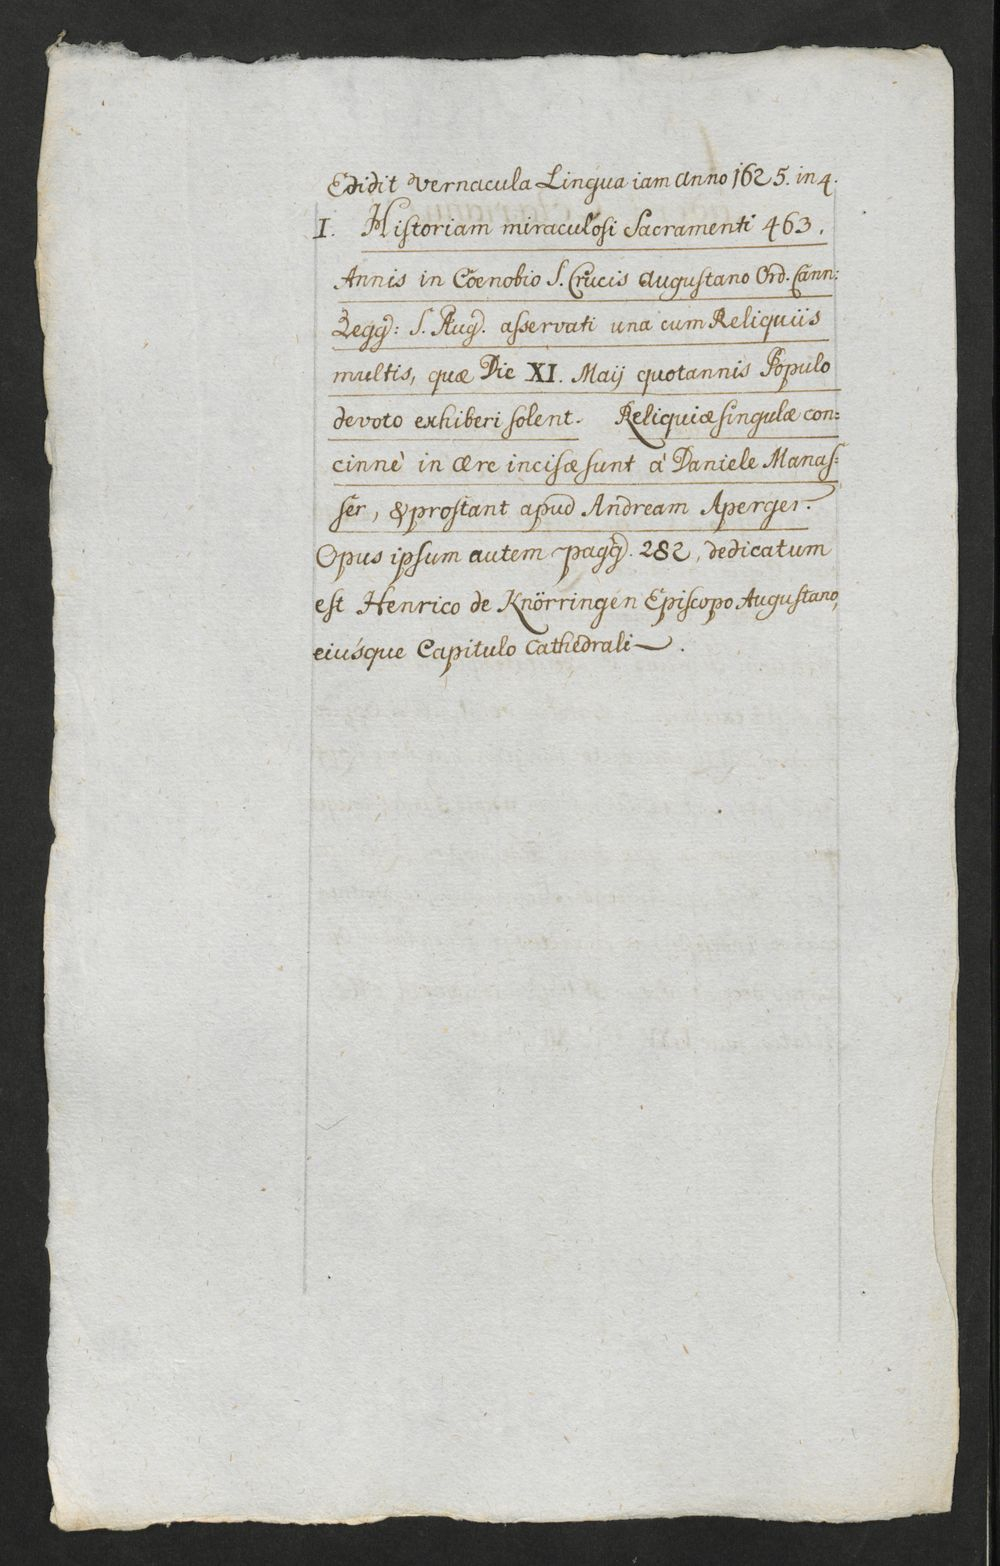 Edidit vernacula Lingua iam Anno 1625. in 4.
I. Historiam miraculosi Sacramenti 463.
Annis in Cœnobio S. Crucis Augustano Ord. Cann:
Regg: S. Aug. asservati una cum Reliquiis
multis, quæ Die XI. Maij quotannis Populo
devoto exhiberi solent. Reliquiæ singulæ con:
cinnè in ære incisæ sunt à Daniele Manas:
ser, & prostant apud Andream Aperger.
Opus ipsum autem pagg. 282, dedicatum
est Henrico de Knörringen Episcopo Augustano,
eiúsque Capitulo Cathedrali.